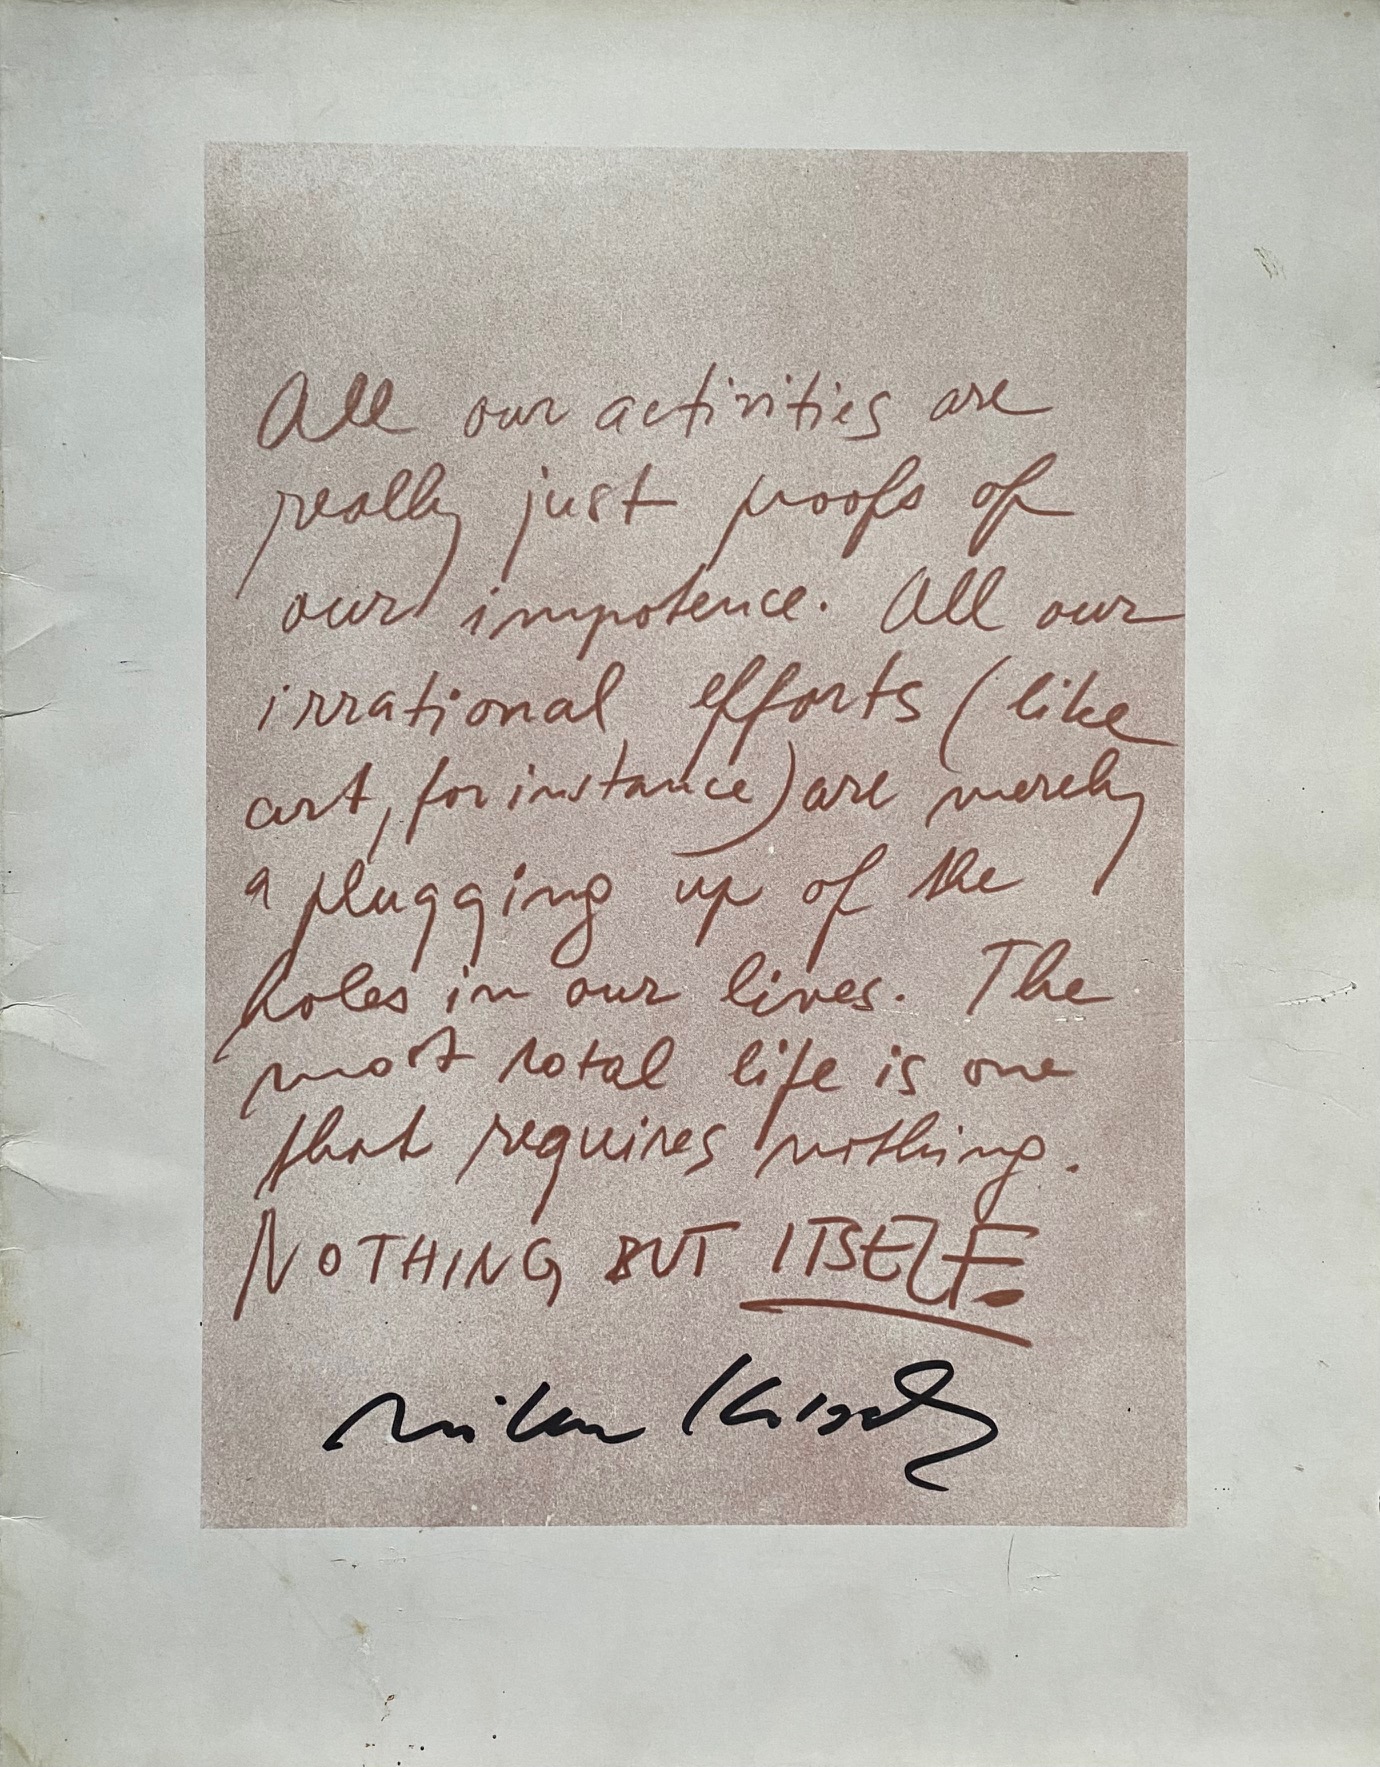 All our activities are
really just proofs of
our impotence. All our
irrational efforts (like
art, for instance) are merely
a plugging up of the
holes in our lives. The
most total life is one
that requires nothing.
NOTHING BUT ITSELF.
Milan